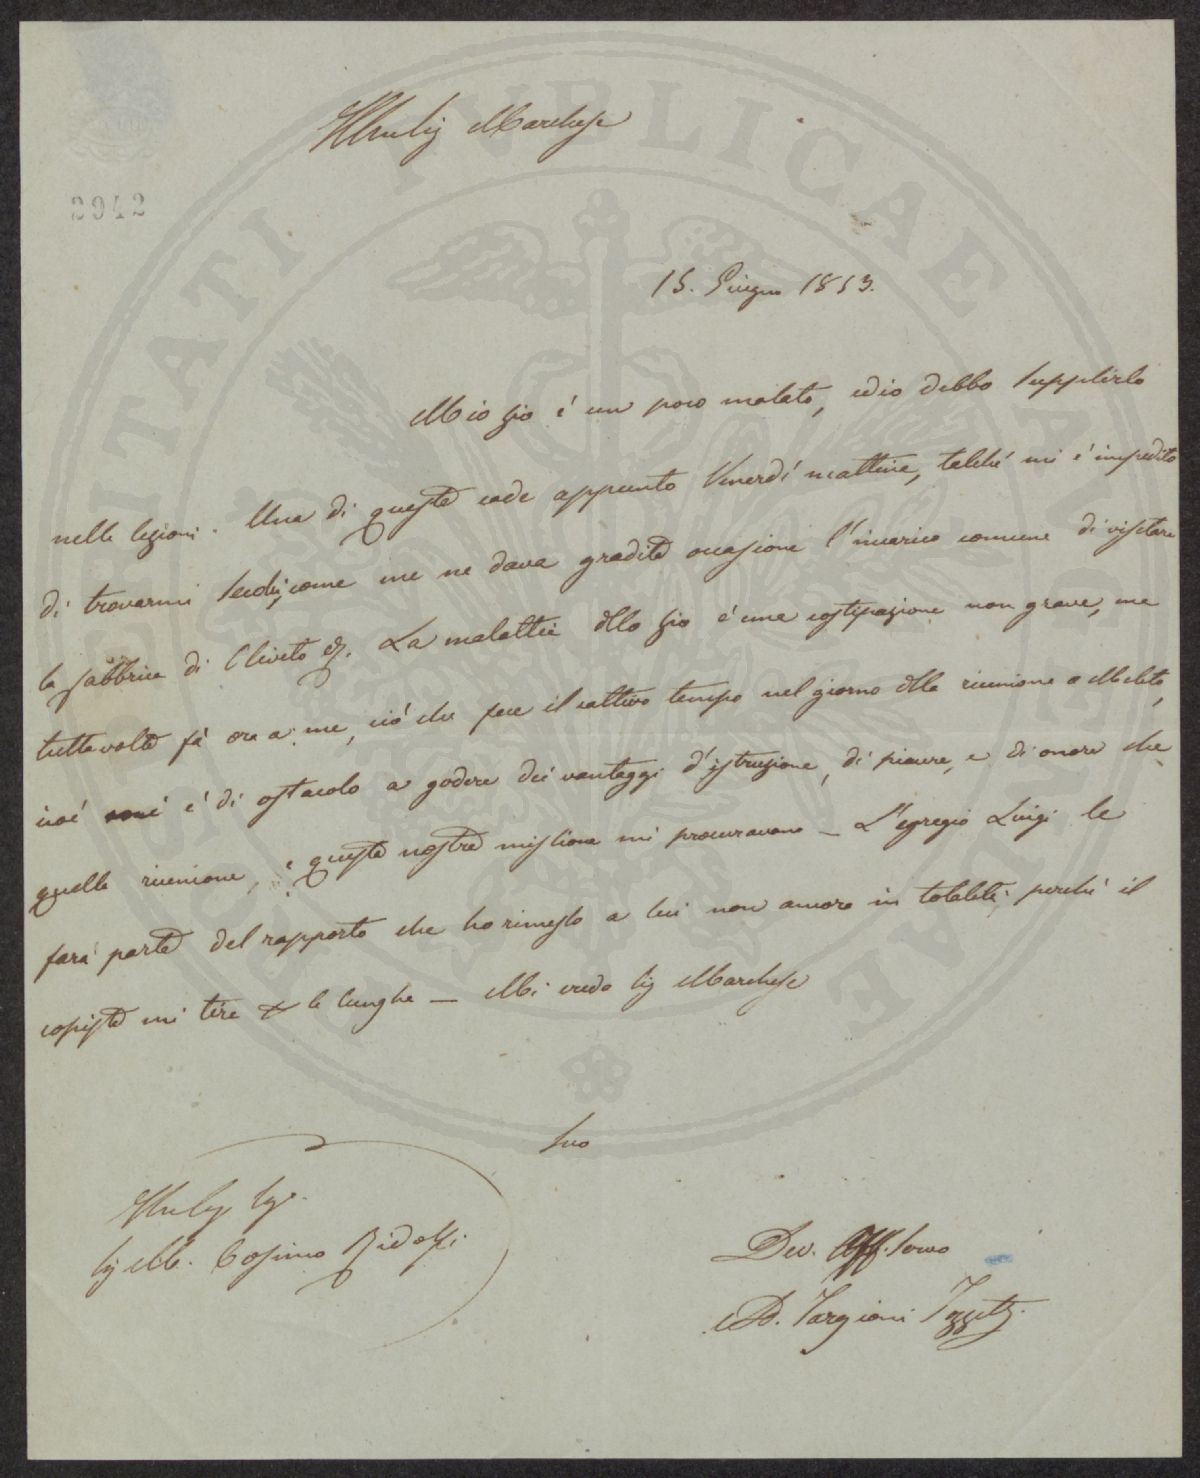 Illmo Sig Marchese
2942
15. Giugno 1853.
Mio zio é un poco malato, ed io debbo supplirlo
nelle lezioni. Una di queste cade appunto Venerdí mattina, talché mi é impedito
di trovarmi seco, come me ne dava gradita occasione l'incarico comune di visitare
la fabbrica di Oliveto &. La malattia dello zio é una costipazione non grave, ma
tuttavolta fá ora a me, ció che fece il cattivo tempo nel giorno della riunione a Meleto,
cioé é di ostacolo a godere dei vantaggi d'istruzione, di piacere, e di onore che
quella riunione, e questa nostra missione mi procuravano — L'egregio Luigi le
fará parte del rapporto che ho rimesso a lui non ancora in totalitá, perché il
copista mi tira le lunghe — Mi creda Sig Marchese
Suo
Sig M. Cosimo Ridolfi
Dev. Aff. Servo
AD. Targioni Tozzetti.
PVBLICAE